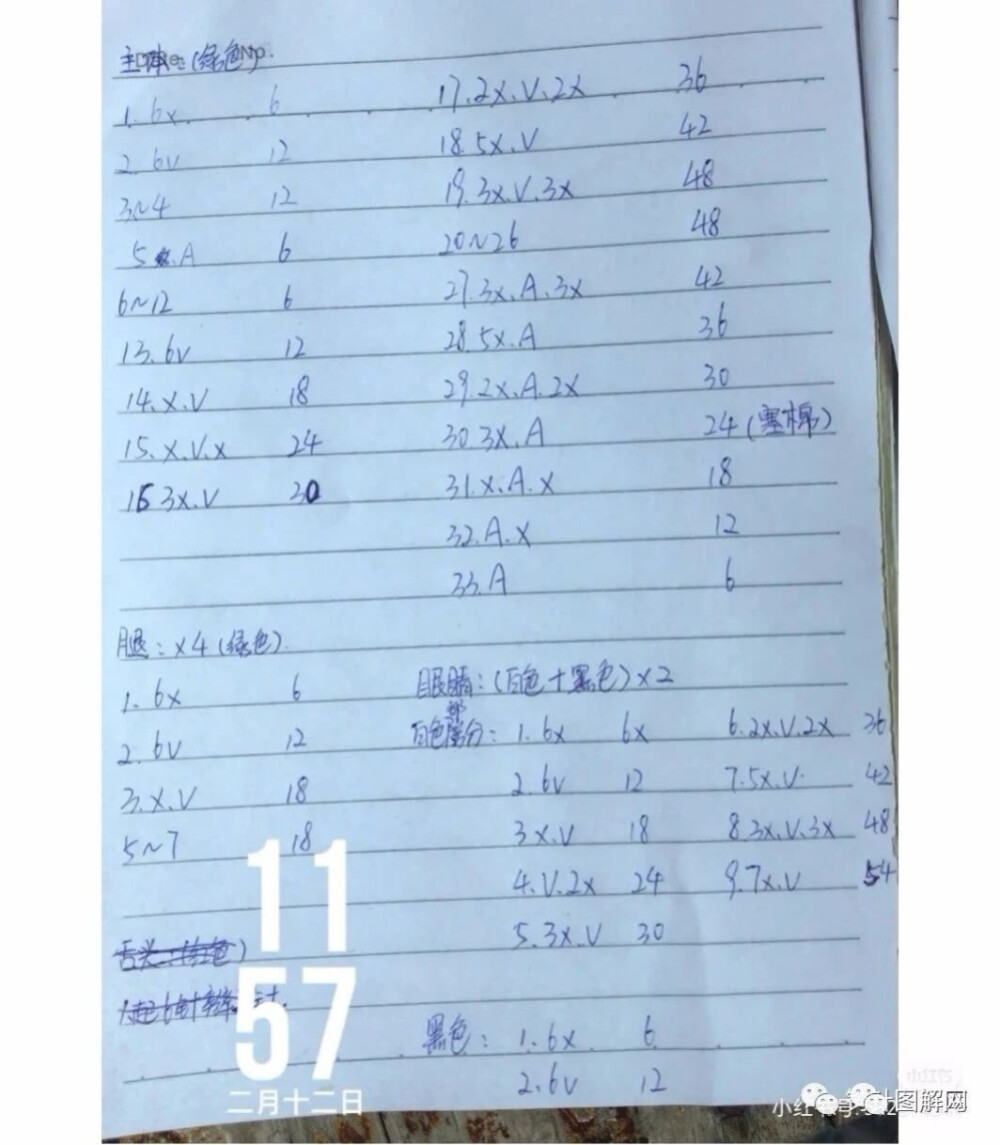 主体:(绿色)
1. 6x 6
2. 6v 12
3~4 12
5 .A 6
6~12 6
13. 6v 12
14. x.V 18
15. x.V.x 24
16 3x.V 30
17. 2x.V.2x 36
18. 5x.V 42
19. 3x.V.3x 48
20~26 48
27. 3x.A.3x 42
28. 5x.A 36
29. 2x.A.2x 30
30 3x.A 24(塞棉)
31. x.A.x 18
32. A.x 12
33. A 6
腿:x4(绿色)
1. 6x 6
2. 6v 12
3. x.V 18
5~7 18
舌头:(红色)
眼睛:(白色+黑色)x2
白色部分:
1. 6x 6x
2. 6v 12
3 x.V 18
4. V.2x 24
5. 3x.V 30
6. 2x.V.2x 36
7. 5x.V. 42
8. 3x.V.3x 48
9. 7x.V 54
黑色:
1. 6x 6
2. 6v 12
11
57
二月十二日
小红
图解网